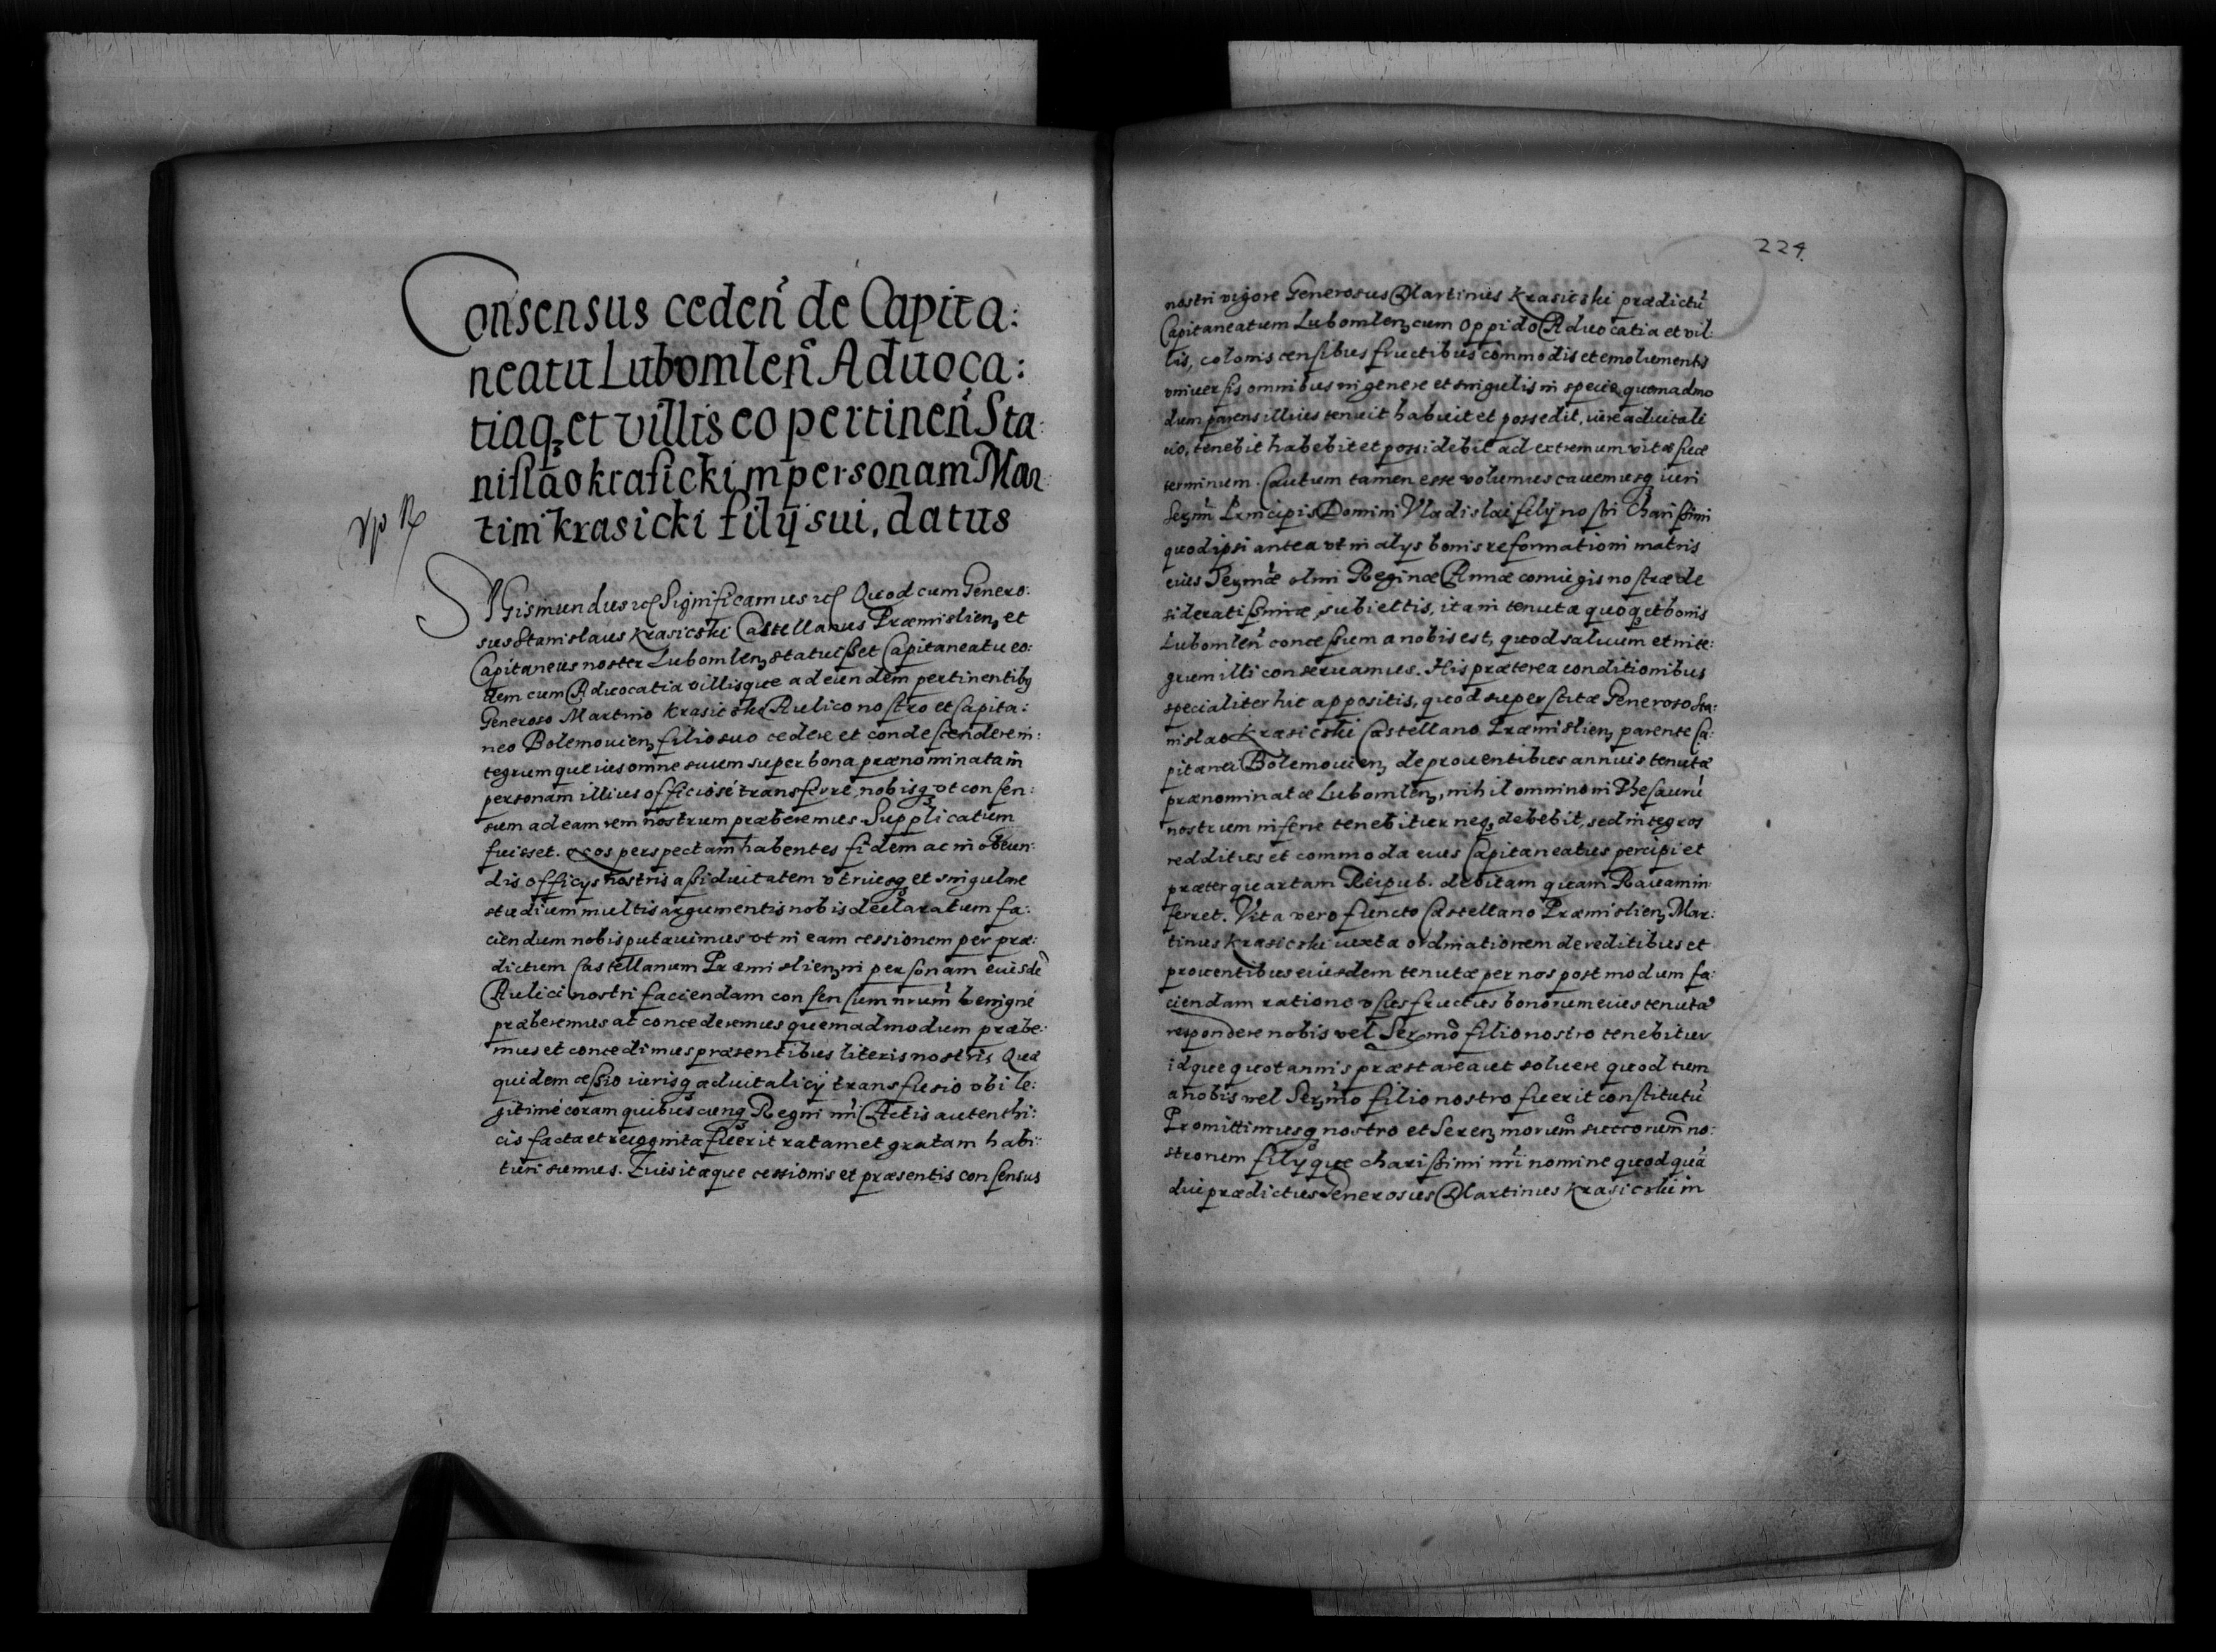 Consensus ceden̄ de Capita:
neatu Lubomlen̄ Aduoca:
tiaqꝫ et villis eo pertinen̄ Sta:
nislao krasicki in personam Mar
tini krasicki filij sui, datus
SIGismundus etc Significamus etc Quod cum Genero:
sus Stanislaus Krasicski Castellanus Præmislienꝫ et
Capitaneus noster Lubomlenꝫ statuisset Capitaneatu eo:
dem cum Aduocatia villisque ad eundem pertinentibꝫ
Generoso Martino Krasicski Aulico nostro et Capita:
neo Bolemouienꝫ filio suo cedere et condescendere in:
tegrumque ius omne suum super bona prænominata in
personam illius officiosé transferre, nobisqꝫ vt consen:
sum ad eam rem nostrum præberemus. Supplicatum
fuisset. Nos perspectam habentes fidem ac in obeun:
dis officijs nostris assiduitatem vtriusqꝫ et singulare
studium multis argumentis nobis declaratum fa:
ciendum nobis putauimus vt in eam cessionem per præ:
dictum Castellanum Præmislienꝫ in personam eiusdē
Aulici nostri faciendam consensum nrūm benigné
præberemus ac concederemus quemadmodum præbe:
mus et concedimus præsentibus literis nostris Quæ
quidem cessio iurisqꝫ aduitalicij transfusio vbi le:
gitimé coram quibuscunqꝫ Regni nrī Actis autenthi:
cis facta et recognita fuerit ratam et gratam habi:
turi sumus. Cuius itaque cessionis et præsentis consensus
224.
nostri vigore Generosus Martinus Krasicski prædictū
Capitaneatum Lubomlenꝫ cum oppido Aduocatia et vil:
lis, colonis censibus fructibus commodis et emolumentis
vniuersis omnibus in genere et singulis in specie, quemadmo
dum parens illius tenuit habuit et possedit, iure aduitali
tio, tenebit habebit et possidebit ad extremum vitæ suæ
terminum. Cautum tamen esse volumus cauemusqꝫ iuri
Serꝫmi Principis Domini Vladislai filij nostri Charissimi
quod ipsi antea vt in alijs bonis reformationi matris
eius Serꝫmæ olim Reginæ Annæ coniugis nostræ de
sideratissimæ, subiectis, ita in tenuta quoqꝫ et bonis
Lubomlen̄ concessum a nobis est, quod saluum et inte:
grum illi conseruamus. His præterea conditionibus
specialiter hic appositis, quod superstite Generoso Sta:
nislao Krasicski Castellano Præmislienꝫ parente Ca:
pitanei Bolemouienꝫ de prouentibus annuis tenutæ
prænominatæ Lubomlenꝫ, nihil omnino in Thesaurū
nostrum inferre tenebitur neqꝫ debebit, sed integros
redditus et commoda eius Capitaneatus percipiet
præter quartam Reipub. debitam quam Rauam in:
ferret. Vita vero functo Castellano Præmislienꝫ Mar:
tinus Krasicski iuxta ordinationem de reditibus et
prouentibus eiusdem tenutæ per nos postmodum fa:
ciendam ratione vsusfructus bonorum eius tenutæ
respondere nobis vel Serꝫmo filio nostro tenebitur
idque quotannis præstare aut soluere quod tum
a nobis vel Serꝫmo filio nostro fuerit constitutū
Promittimusqꝫ nostro et Serenꝫmorum succorum no:
strorum filijque charissimi nrī nomine quod quā
diu prædictus Generosus Martinus Krasicski in